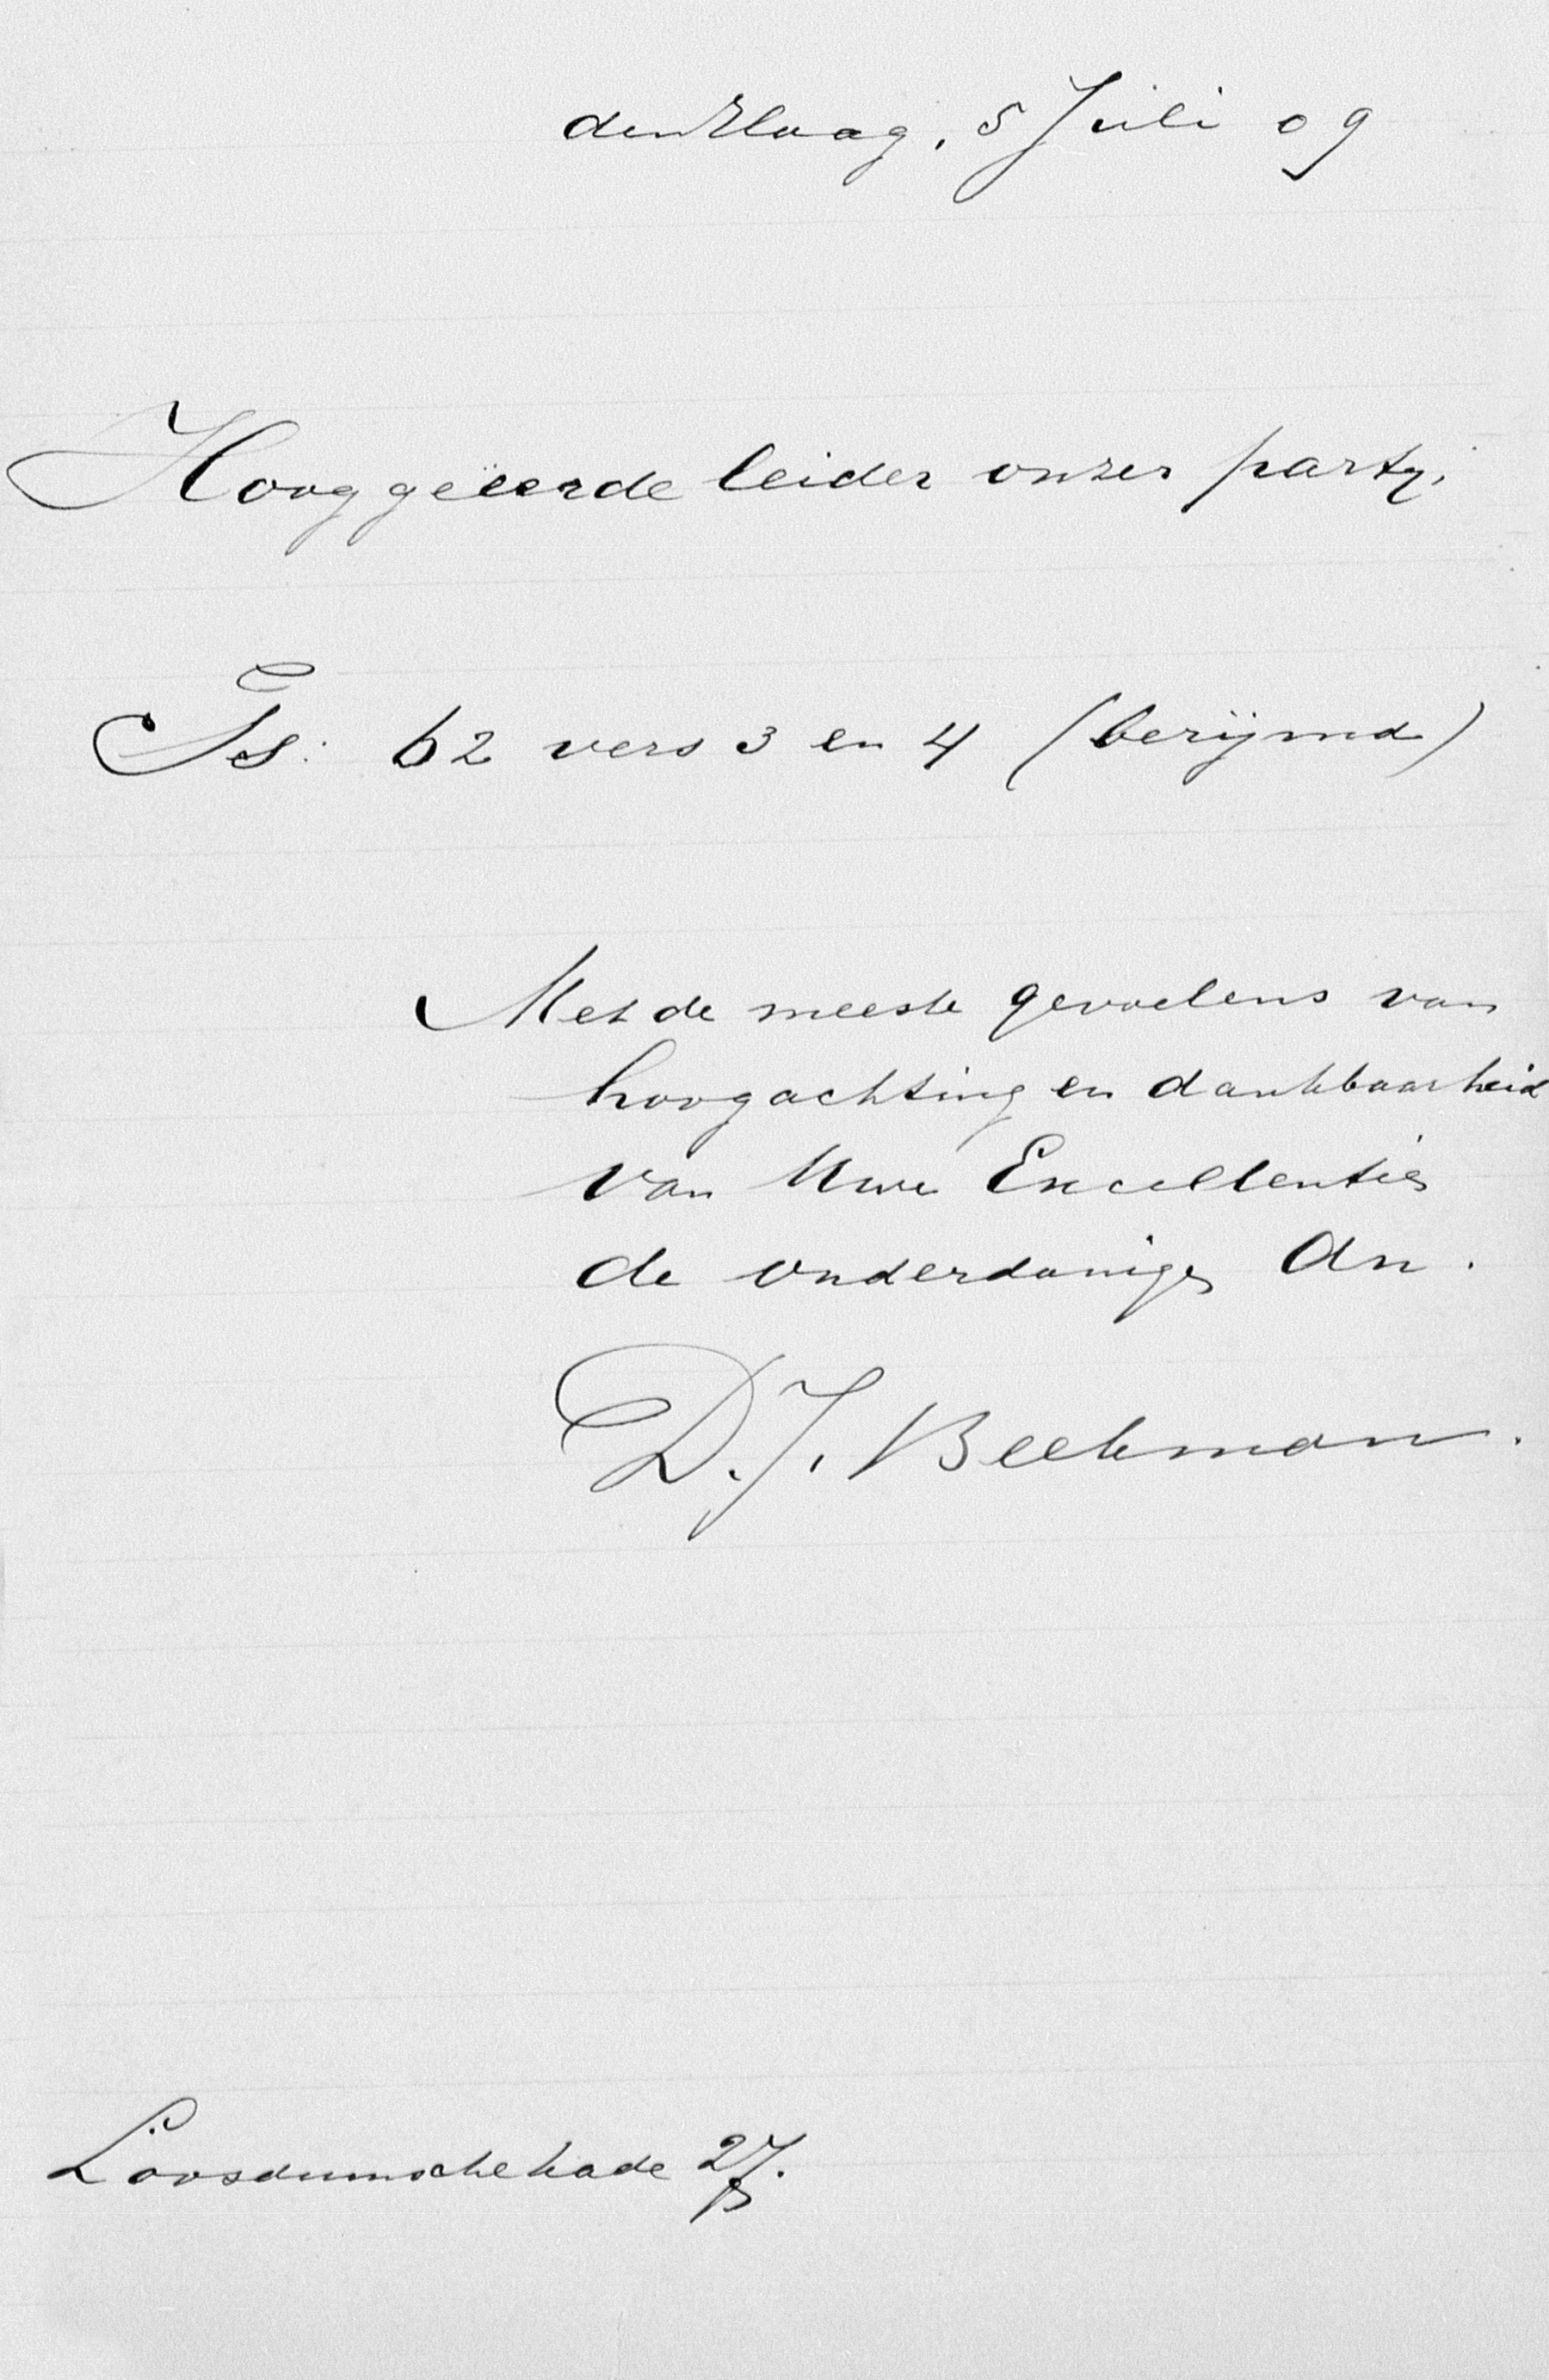 den Haag, 5 Juli 09
Hooggeëerde leider onzer party.
Ps: 62 vers 3 en 4 (berijmd)
Met de meeste gevoelens van
hoogachting en dankbaarheid
van Uwe Excellentie
de onderdanige dn.
D. J. Beekman.
Loosduinschekade 27.